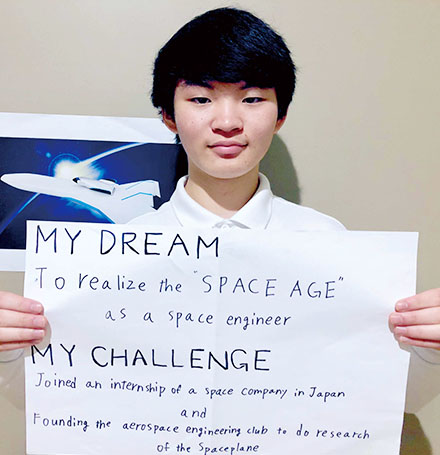 MY DREAM
To realize the "SPACE AGE"
as a space engineer
MY CHALLENGE
Joined an internship of a space company in Japan
and
Founding the aerospace engineering club to do research
of the Spaceplane